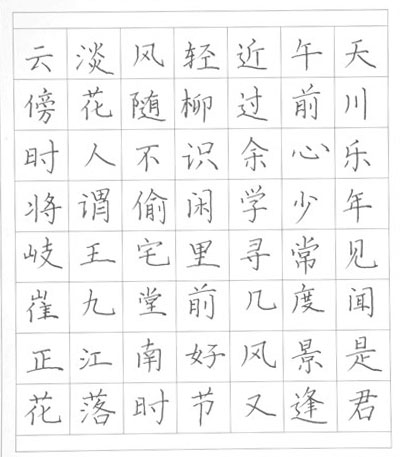 云淡风轻近午天
傍花随柳过前川
时人不识余心乐
将谓偷闲学少年
岐王宅里寻常见
崔九堂前几度闻
正江南好风景是
花落时节又逢君